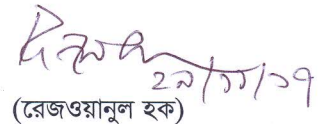 ২৯/১১/১৭
(রেজওয়ানুল হক)